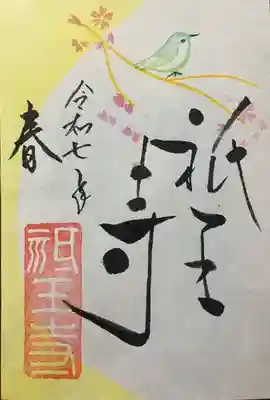 祇王
寺
令和七年
春
祇王寺